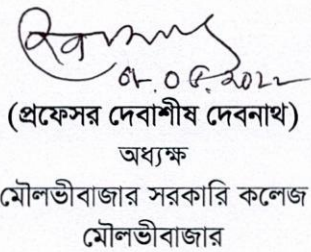 ০৮.০৫.২০২২
(প্রফেসর দেবাশীষ দেবনাথ)
অধ্যক্ষ
মৌলভীবাজার সরকারি কলেজ
মৌলভীবাজার